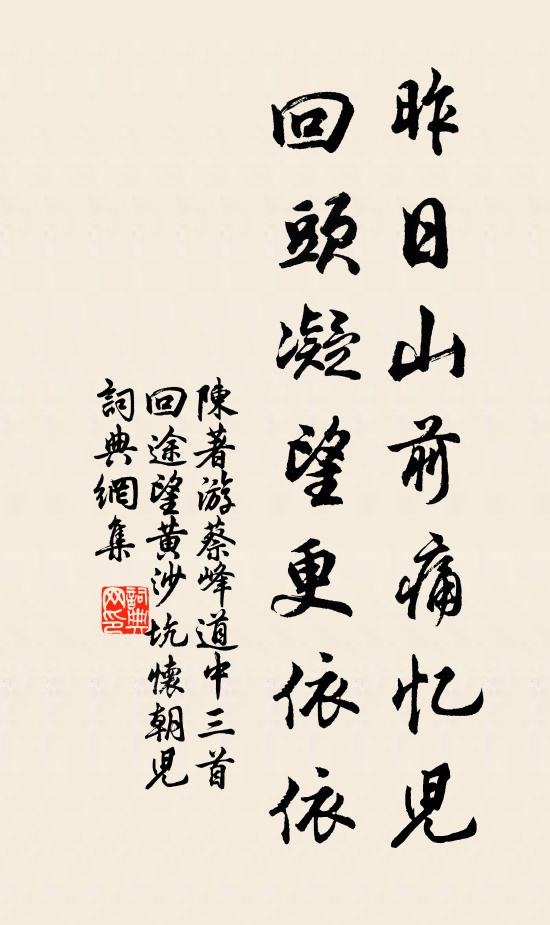 昨日山前痛忆児
回頭凝望更依依
陳著游蔡峰道中三首
回途望黄沙坑懷朝児
詞典網集
詞典網印